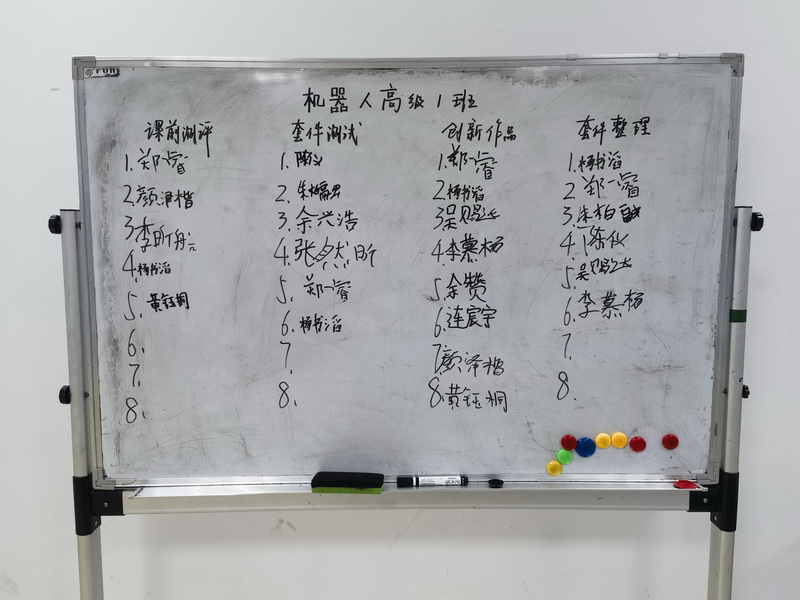 机器人高级1班
课前测评
1.郑一睿
2.颜泽楷
3.李昕
4.杨书滔
5.黄钰桐
6.
7.
8.
套件测试
1.陈仪
2.朱
3.余兴浩
4.张然昕
5.郑一睿
6.杨书滔
7.
8.
创新作品
1.郑一睿
2.杨书滔
3.吴
4.李慕杨
5.余赞
6.连宸宇
7.颜泽楷
8.黄钰桐
套件整理
1.杨书滔
2.郑一睿
3.朱柏
4.陈仪
5.吴
6.李慕杨
7.
8.